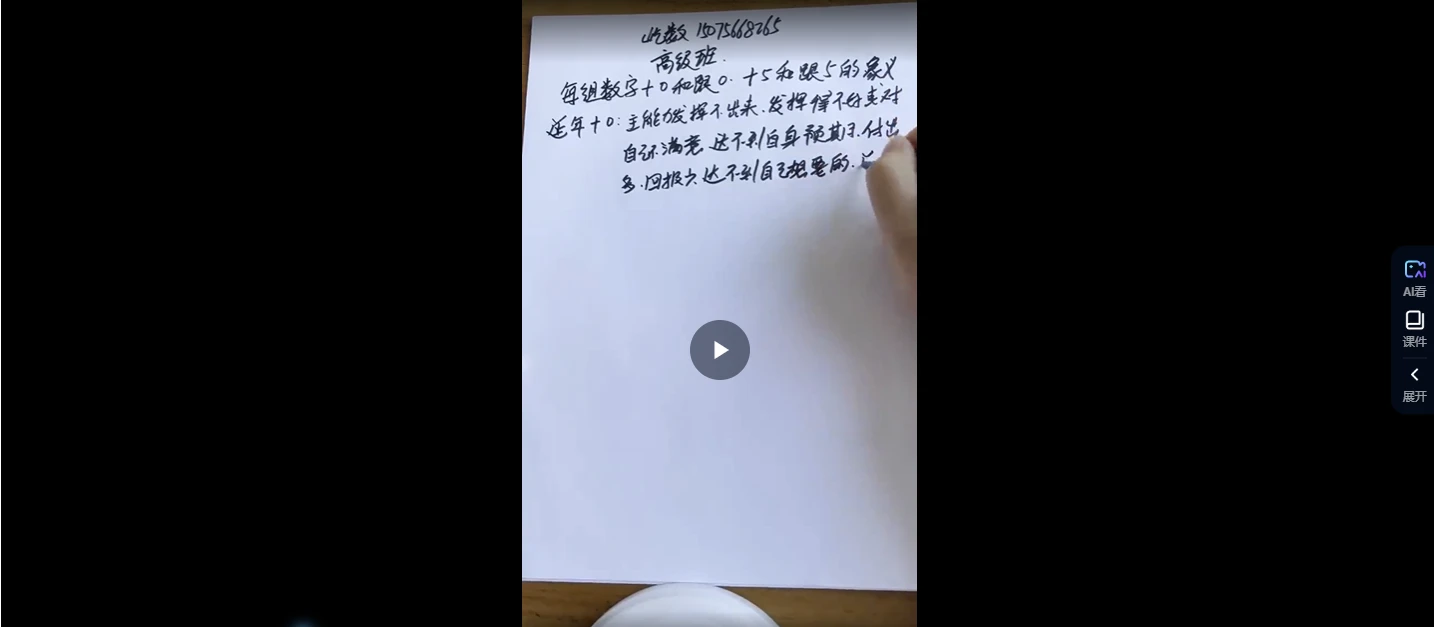 数 15075668265
高级班.
每组数字+0和跟0.+5和跟5的象义
延年+0:主能力发挥不出来.发挥得不好或对
自己不满意.达不到自身预期.付出
多.回报少.达不到自己想要的.
AI看
课件
展开